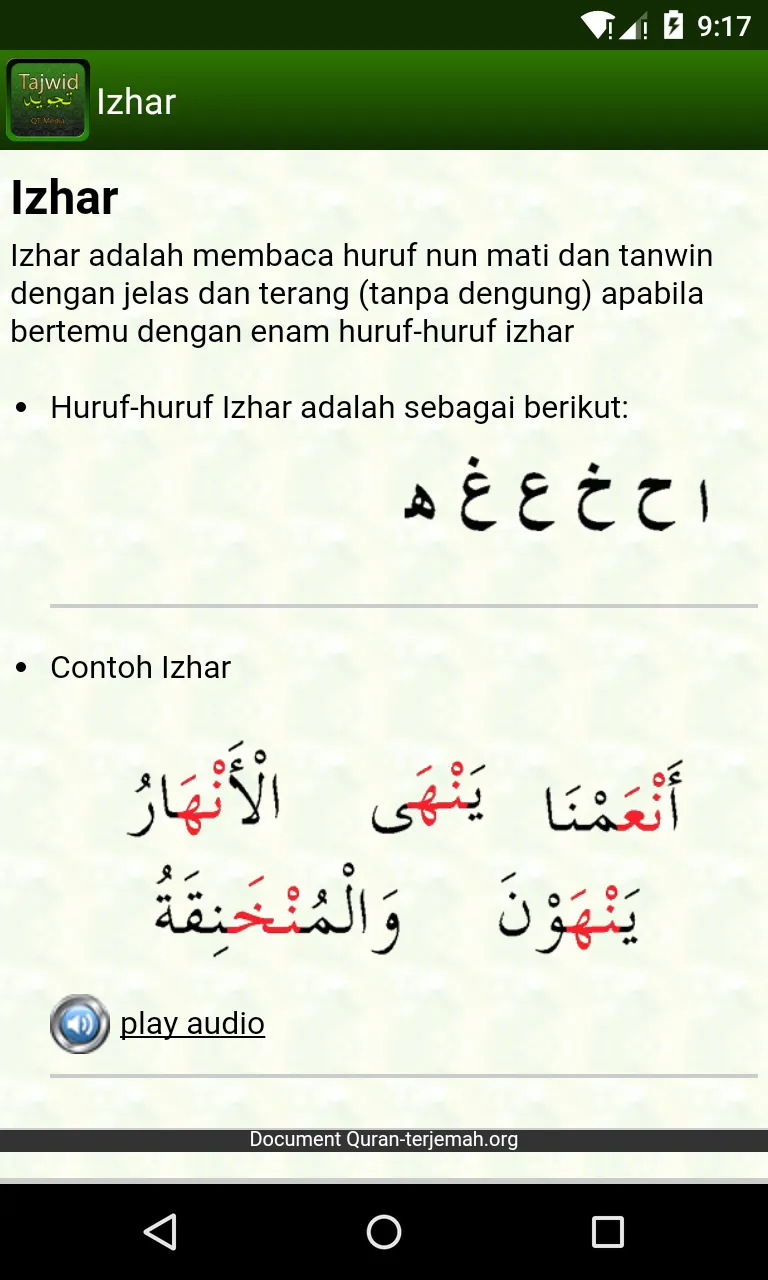 9:17
Tajwid
تجويد
QT Media
Izhar
Izhar
Izhar adalah membaca huruf nun mati dan tanwin
dengan jelas dan terang (tanpa dengung) apabila
bertemu dengan enam huruf-huruf izhar
• Huruf-huruf Izhar adalah sebagai berikut:
ا ح خ ع غ ه
• Contoh Izhar
أَنْعَمْنَا يَنْهَى الْأَنْهَارُ
يَنْهَوْنَ وَالْمُنْخَنِقَةُ
play audio
Document Quran-terjemah.org